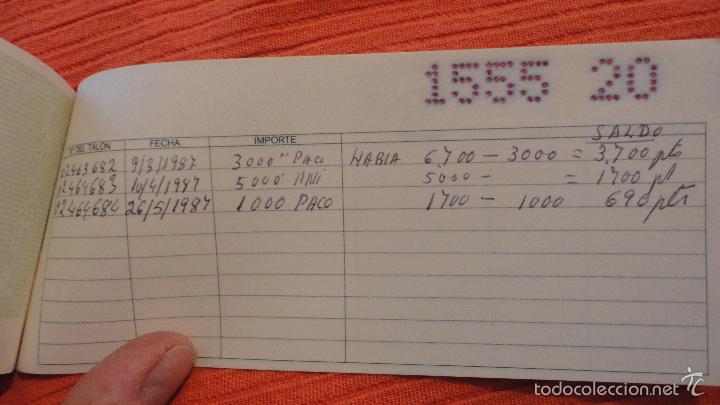 1555 20
Nº DEL TALON FECHA IMPORTE SALDO
02463682 9/3/1987 3000 PACO HABIA 6,700 - 3000 = 3,700 pts
02464683 10/4/1987 5000 5000 - = 1700 pt
02464684 26/5/1987 1000 PACO 1700 - 1000 690 pts
todocoleccion.net